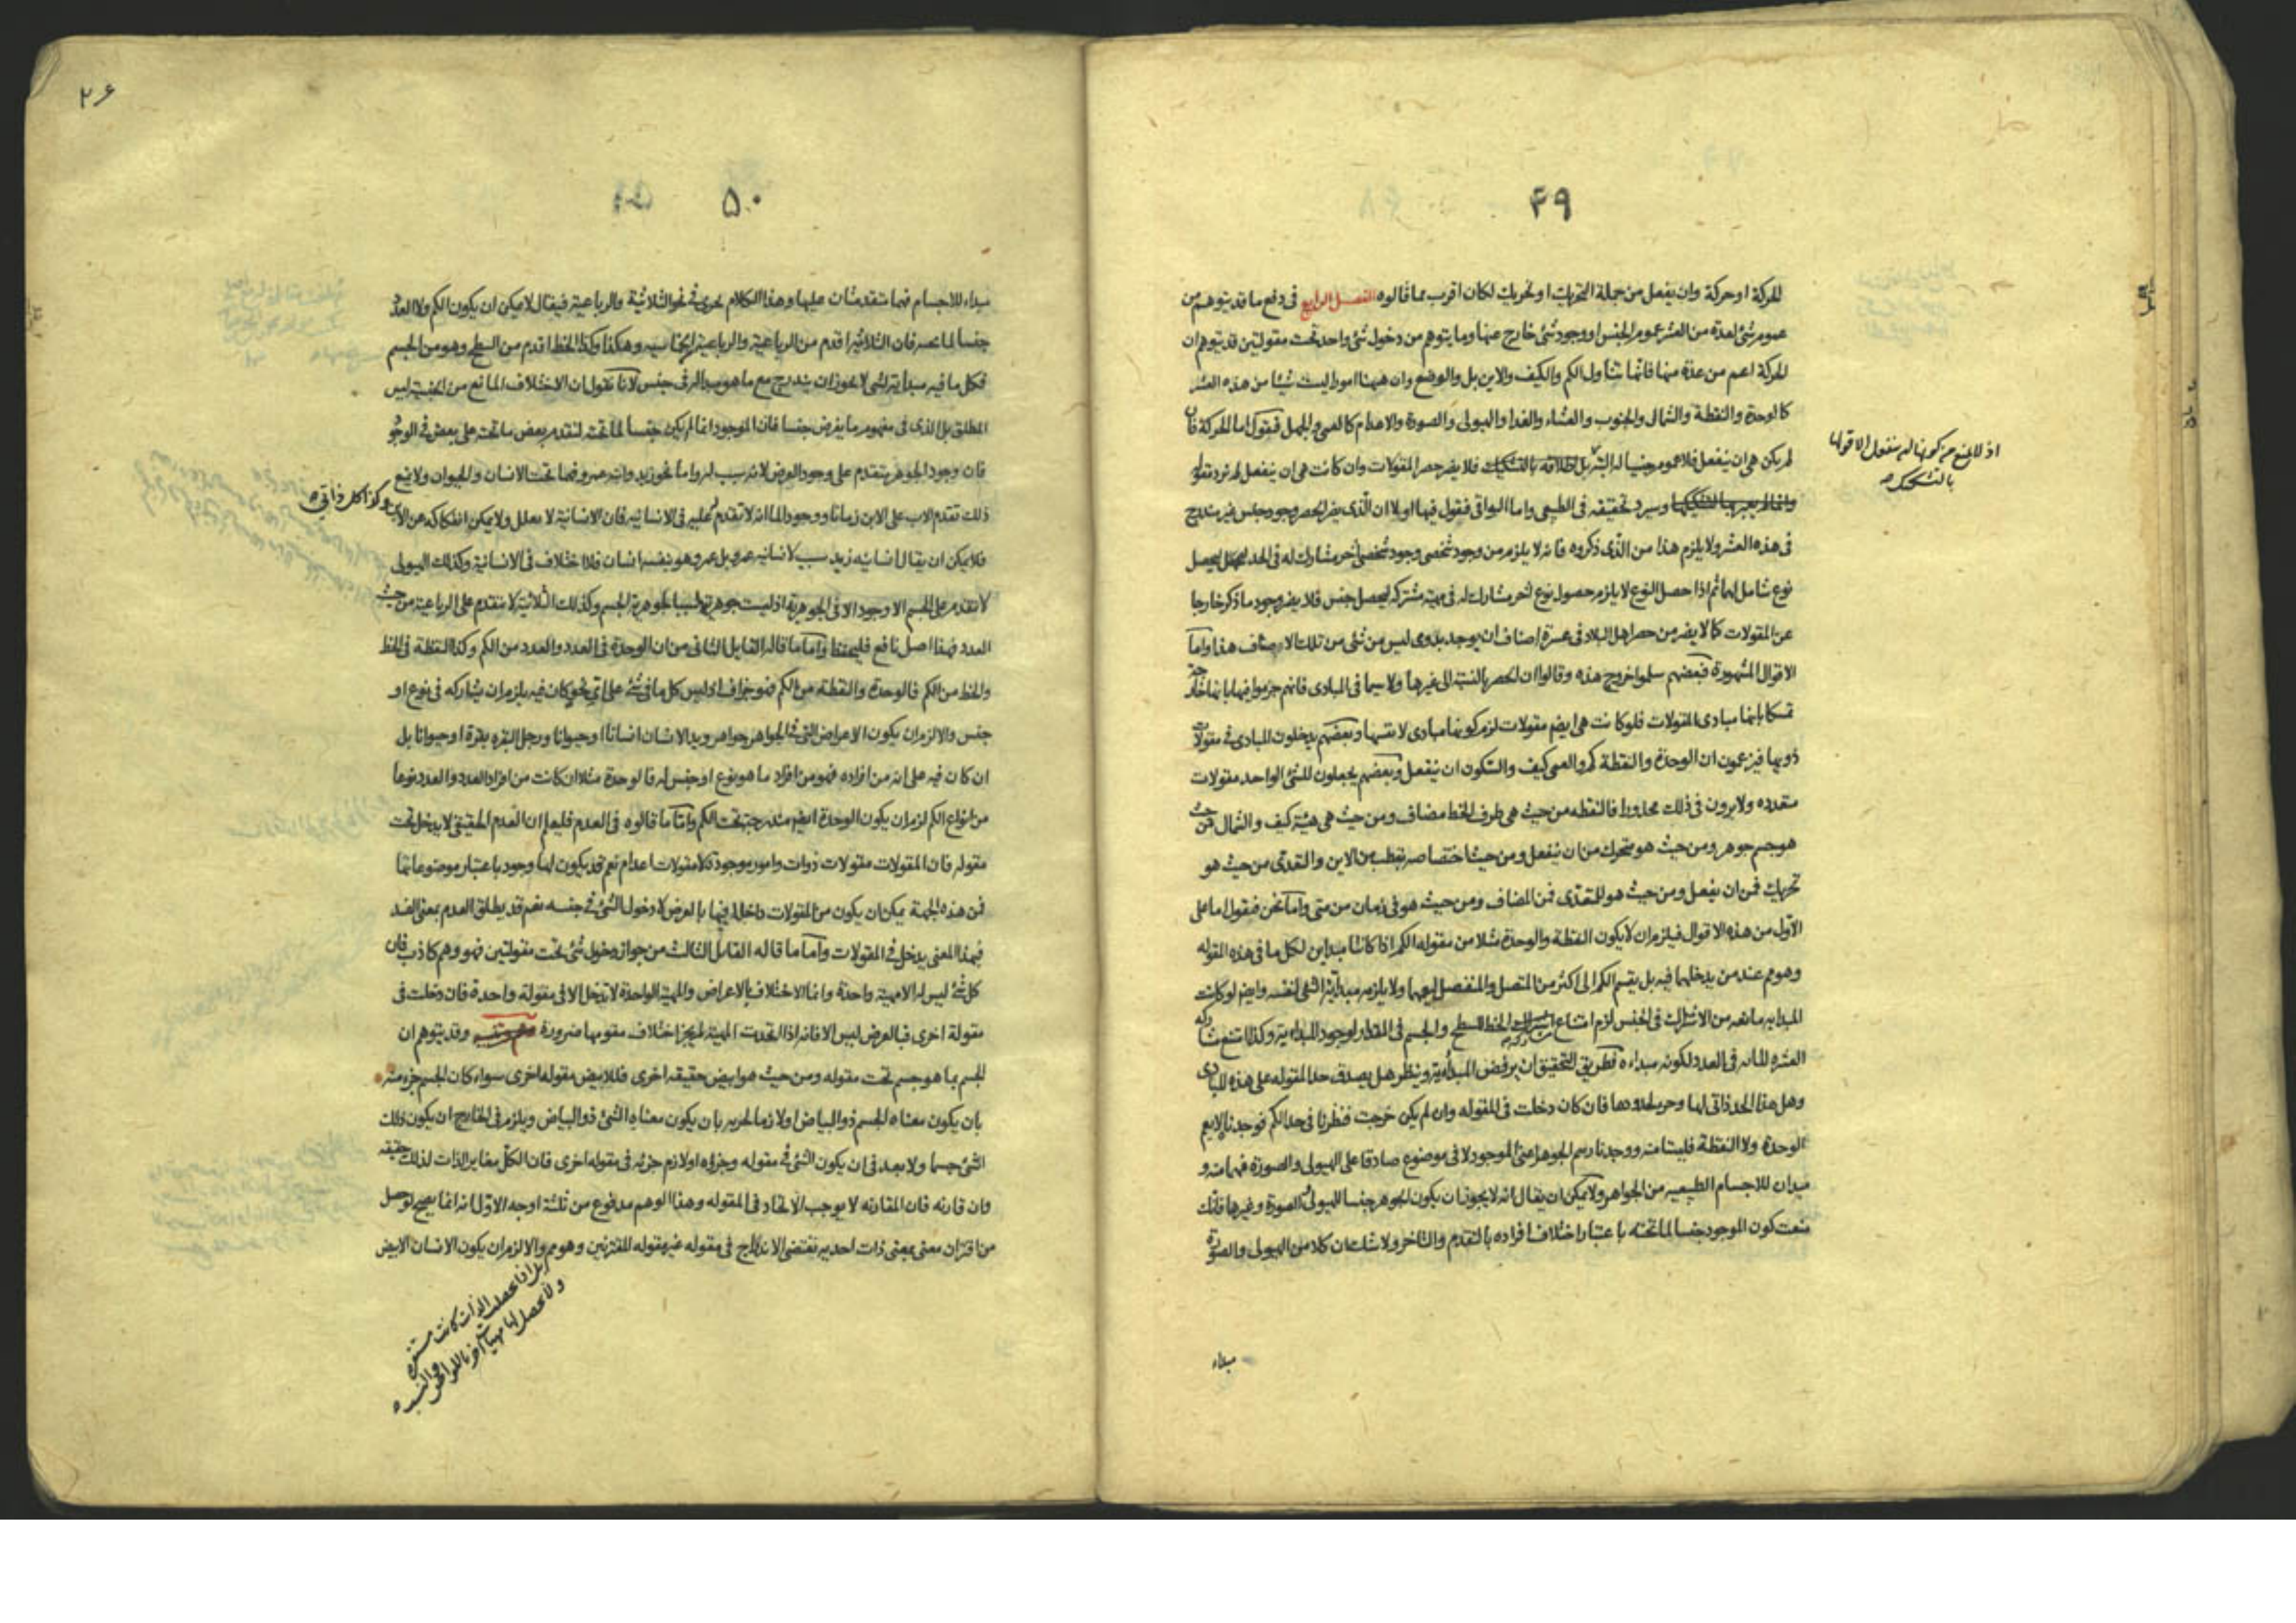 ۴۹
الحركة او حركة وان يفعل من جملة التحريك او تحريك لكان اقرب مما قالوه الفصل الرابع فى دفع ما قد يتوهم من
عموم شئ لعدة من العشر عموم الجنس او وجود شئ خارج عنها وما يتوهم من دخول شئ واحد تحت مقولتين قد يتوهم ان
الحركة اعم من عدة منها فانها تتناول الكم والكيف والاين بل والوضع وان ههنا امورا ليست شيئا من هذه العشر
كالوحدة والنقطة والشمال والجنوب والعشاء والغداء والهيولى والصورة والاعدام كالعمى والجهل فنقول اما الحركة فان
لم يكن هى ان ينفعل فلا عموم جنسيا لها البتة بل اطلاقه بالتشكيك فلا يضر حصر المقولات وان كانت هى ان ينفعل لم تزد مقولة
وسيرد تحقيقه فى الطبيعى واما البواقى فنقول فيها اولا ان الذى يضر الحصر وجود جنس غير مندرج
فى هذه العشر ولا يلزم هذا من الذى ذكروه فانه لا يلزم من وجود شخص وجود شخص اخر مشارك له فى الحد ليحصل
نوع شامل لهما ثم اذا حصل النوع لا يلزم حصول نوع اخر مشارك له فى مهية مشتركة ليحصل جنس فلا يضر وجود ما ذكر خارجا
عن المقولات كما لا يضر من حصر اهل البلاد فى عشرة اصناف ان يوجد بدوى ليس من شئ من تلك الاصناف هذا واما
الاقوال المشهورة فبعضهم سلموا خروج هذه وقالوا ان الحصر بالنسبة الى غيرها ولا سيما فى المبادى فانهم جزموا فيها بانها خارجة
تمسكا بانها مبادى المقولات فلو كانت هى ايضم مقولات لزم كونها مبادى لانفسها وبعضهم يدخلون المبادى فى مقولات
ذويها فيزعمون ان الوحدة والنقطة كم والعمى كيف والسكون ان ينفعل وبعضهم يجعلون للشئ الواحد مقولات
متعدده ولا يرون فى ذلك محذورا فالنقطه من حيث هى طرف الخط مضاف ومن حيث هى هيئة كيف والشمال من حيث
هو جسم جوهر ومن حيث هو متحرك من ان ينفعل ومن حيث اختصاصه بقطب من الاين والتغدى من حيث هو
تحريك فمن ان يفعل ومن حيث هو للمتغدى فمن المضاف ومن حيث هو فى زمان من متى واما نحن فنقول اما على
الاول من هذه الاقوال فيلزم ان لا يكون النقطة والوحدة مثلا من مقولة الكم اذا كانتا مبداين لكل ما فى هذه المقوله
وهو مم عند من يدخلهما فيه بل يقسم الكم الى اكثر من المتصل والمنفصل اليهما ولا يلزمه مبدائية الشئ لنفسه وايضم لو كانت
المبدايه مانعه من الاشتراك فى الجنس لزم امتناع الخط السطح والجسم فى المقدار لوجود المبداءية وكذا امتنع مشاركة
العشره للمائه فى العدد لكونه مبداء ه فطريق التحقيق ان يرفض المبدأية وينظر هل يصدق حد المقوله على هذه المبادى
وهل هذا الحد ذاتى لها وجزء لحدودها فان كان دخلت فى المقوله وان لم يكن خرجت فنظرنا فى حد الكم فوجدنا لا يعم
الوحدة ولا النقطة فليستا منه ووجدنا رسم الجوهر اعنى الموجود لا فى موضوع صادقا على الهيولى والصورة فهما منه و
مبدآن للاجسام الطبيعيه من الجواهر ولا يمكن ان يقال انه لا يجوز ان يكون الجوهر جنسا للهيولى والصورة وغيرها فانك
منعت كون الموجود جنسا لما تحته باعتبار اختلاف افراده بالتقدم والتاخر ولا شك ان كلا من الهيولى والصورة
مبداء
بالتشكيك
۵۰
مبداء للاجسام فهما متقدمتان عليها وهذا الكلام يجرى فى نحو الثلاثية والرباعية فيقال لا يمكن ان يكون الكم ولا العدد
جنسا لما تحته فان الثلاثية اقدم من الرباعية والرباعية من الخماسيه وهكذا وكذا الخط اقدم من السطح وهو من الجسم
فكل ما فيه مبدأية لشئ لا يجوز ان يندرج مع ما هو مبدا له فى جنس لانا نقول ان الاختلاف المانع من الجنسية ليس
المطلق بل الذى فى مفهوم ما يفرض جنسا فان الموجود انما لم يكن جنسا لما تحته لتقدم بعض ما تحته على بعض فى الوجود
فان وجود الجوهر يتقدم على وجود العرض لانه سبب له واما نحو زيد وابنه عمرو فهما تحت الانسان والحيوان ولا يمنع
ذلك تقدم الاب على الابن زمانا ووجودا لما انه لا تقدم له عليه فى الانسانيه فان الانسانية لا يعلل ولا يمكن انفكاكه عن الابن
وكذا كل ذاتى
فلا يمكن ان يقال انسانيه زيد سبب لانسانيه عمرو بل عمرو هو بنفسه انسان فلا اختلاف فى الانسانية وكذلك الهيولى
لا تتقدم على الجسم الا وجودا لا فى الجوهرية اذ ليست جوهريتها سببا لجوهرية الجسم وكذلك الثلاثية لا تتقدم على الرباعية من حيث
العدد فهذا اصل نافع فليحفظ واما ما قاله القايل الثانى من ان الوحدة فى العدد والعدد من الكم وكذا النقطة فى الخط
والخط من الكم فالوحدة والنقطه من الكم فهو جزاف اذ ليس كل ما فى شئ على اى نحو كان فيه يلزم ان يشاركه فى نوع او
جنس والا لزم ان يكون الاعراض التى فى الجواهر جواهر ويد الانسان انسانا او حيوانا ورجل البقره بقرة او حيوانا بل
ان كان فيه على انه من افراده فهو من افراد ما هو نوع او جنس له فالوحدة مثلا ان كانت من افراد العدد والعدد نوعا
من انواع الكم لزم ان يكون الوحدة ايضم مندرجة تحت الكم واما ما قالوه فى العدم فليعلم ان العدم الحقيقى لا يدخل تحت
مقوله فان المقولات مقولات ذوات وامور موجودة لا مقولات اعدام نعم قد يكون لها وجود باعتبار موضوعاتها
فمن هذه الجهة يمكن ان يكون من المقولات داخلة فيها بالعرض لا دخول الشئ فى جنسه نعم قد يطلق العدم بمعنى الضد
فبهذا المعنى يدخل فى المقولات واما ما قاله القايل الثالث من جواز دخول شئ تحت مقولتين فهو وهم كاذب فان
كل شئ ليس له الا مهية واحدة وانما الاختلاف بالاعراض والمهية الواحدة لا تدخل الا فى مقولة واحدة فان دخلت فى
مقولة اخرى فبالعرض ليس الا فانه اذا اتحدت المهية لم يجز اختلاف مقومها ضرورة وقد يتوهم ان
الجسم بما هو جسم تحت مقوله ومن حيث هو ابيض حقيقه اخرى فللابيض مقوله اخرى سواء كان الجسم جزء منه
بان يكون معناه الجسم ذو البياض او لازما لجزئه بان يكون معناه الشئ ذو البياض ويلزم فى الخارج ان يكون ذلك
الشئ جسما ولا بعد فى ان يكون الشئ فى مقوله وجزؤه او لازم جزئه فى مقوله اخرى فان الكل مغاير الذات لذلك حقيقه
وان قارنه فان المقارنه لا يوجب الاتحاد فى المقوله وهذا الوهم مدفوع من ثلثة اوجه الاول انه انما يصح لو حصل
من اقتران معنى بمعنى ذات احديه تقتضى الاندراج فى مقوله غير مقوله المقترنين وهو مم والا لزم ان يكون الانسان الابيض